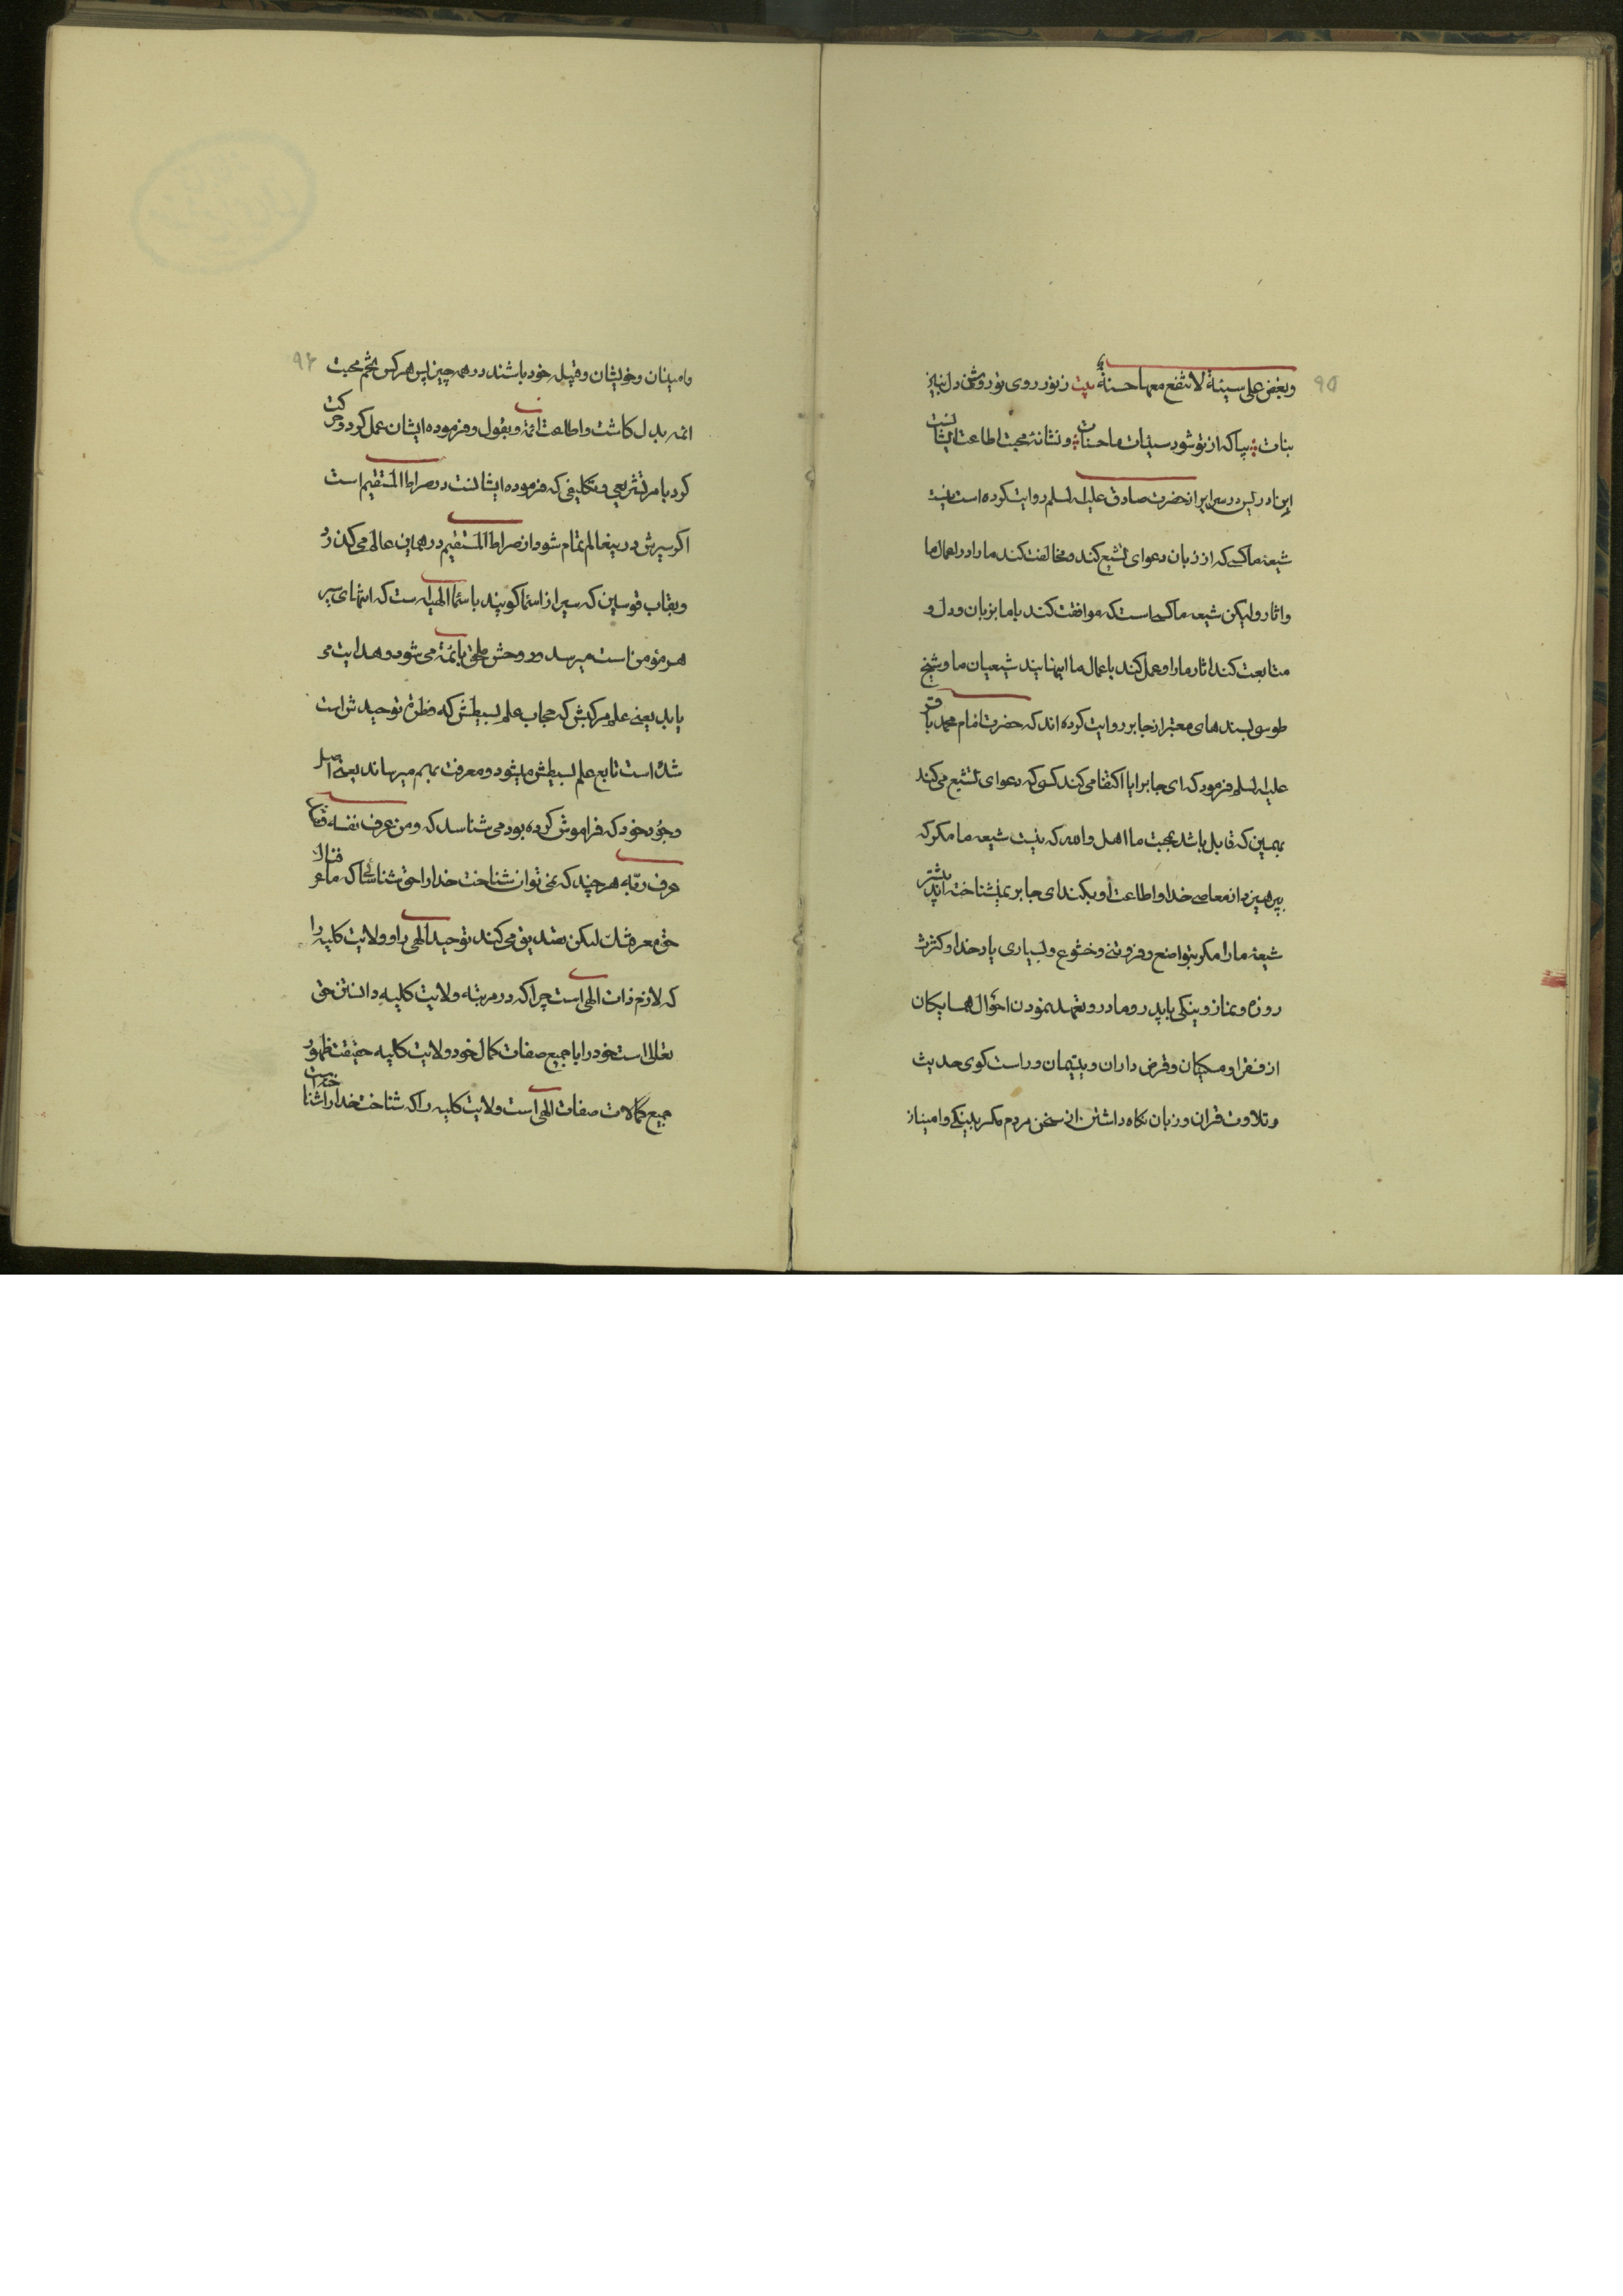 ۹۵
وبغض علی سیئة لا تنفع معها حسنة بیت ز نور روی تو روشن دل
بیا که از تو شود سیئات ما حسنات و نشانهٔ محبت اطاعت ایشانست
ابن ادریس در سرایر از حضرت صادق علیه السلم روایت کرده است نیست
شیعهٔ ما کسی که از زبان دعوای تشیع کند و مخالفت کند ما را در اعمال ما
واثار ولیکن شیعه ما کسی است که موافقت کند با ما بزبان و دل و
متابعت کند اثار ما را و عمل کند باعمال ما اینهایند شیعیان ما و شیخ
طوسی بسندهای معتبر از جابر روایت کرده اند که حضرت امام محمد باقر
علیه السلم فرمود که ای جابر ایا اکتفا می کند کسی که دعوای تشیع می کند
بهمین که قایل باشد بمحبت ما اهل والله که نیست شیعه ما مکر که
بپرهیزد از معاصی خدا و اطاعت او بکند ای جابر نمیشناخته اند پیشتر
شیعهٔ ما را مکر بتواضع و فروتنی و خشوع و بسیاری یاد خدا و کثرت
روزه و نماز و نیکی با پدر و مادر و تعهد نمودن احوال همسایکان
از فقرا و مسکینان و قرض داران و یتیمان و راست کوی حدیث
و تلاوت قران و زبان نکاه داشتن از سخن مردم مکر بنیکی و امینان
۹۶
وامینان و خویشان و قبیله خود باشند در همه چیز پس هرکس تخم محبت
ائمه بدل کاشت و اطاعت ائمه و بقول و فرموده ایشان عمل کرد و حرکت
کرد بامر تشریعی و تکلیفی که فرموده ایشانست در صراط المستقیم است
اکر سیرش در ینعالم تمام شود از صراط المستقیم در همین عالم می کذرد
و بقاب قوسین که سیر از اسما کویند باسما الهیه است که انتهای سیر
هر مؤمن است میرسد و روحش ملحق بائمه می شود و هدایت می
یابد یعنی علم مرکبش که حجاب علم بسیطش که فطرة توحیدش است
شده است تابع علم بسیطش میشود و معرفت بهم میرساند یعنی اصل
وجود خود که فراموش کرده بود می شناسد که و من عرف نفسه فقد
عرف ربه هر چند که نمی توان شناخت خدا را حق شناسائی که ما عرفناك
حق معرفتك لیکن تصدیق می کند توحید الهی را و ولایت کلیه را
که لازم ذات الهی است چرا که در مرتبه ولایت کلیه دانستن حق
تعالی است خود را با جمیع صفات کمال خود و ولایت کلیه حقیقت ظهور
جمیع کمالات صفات الهی است ولایت کلیه را که شناخت خدا را شناخته است